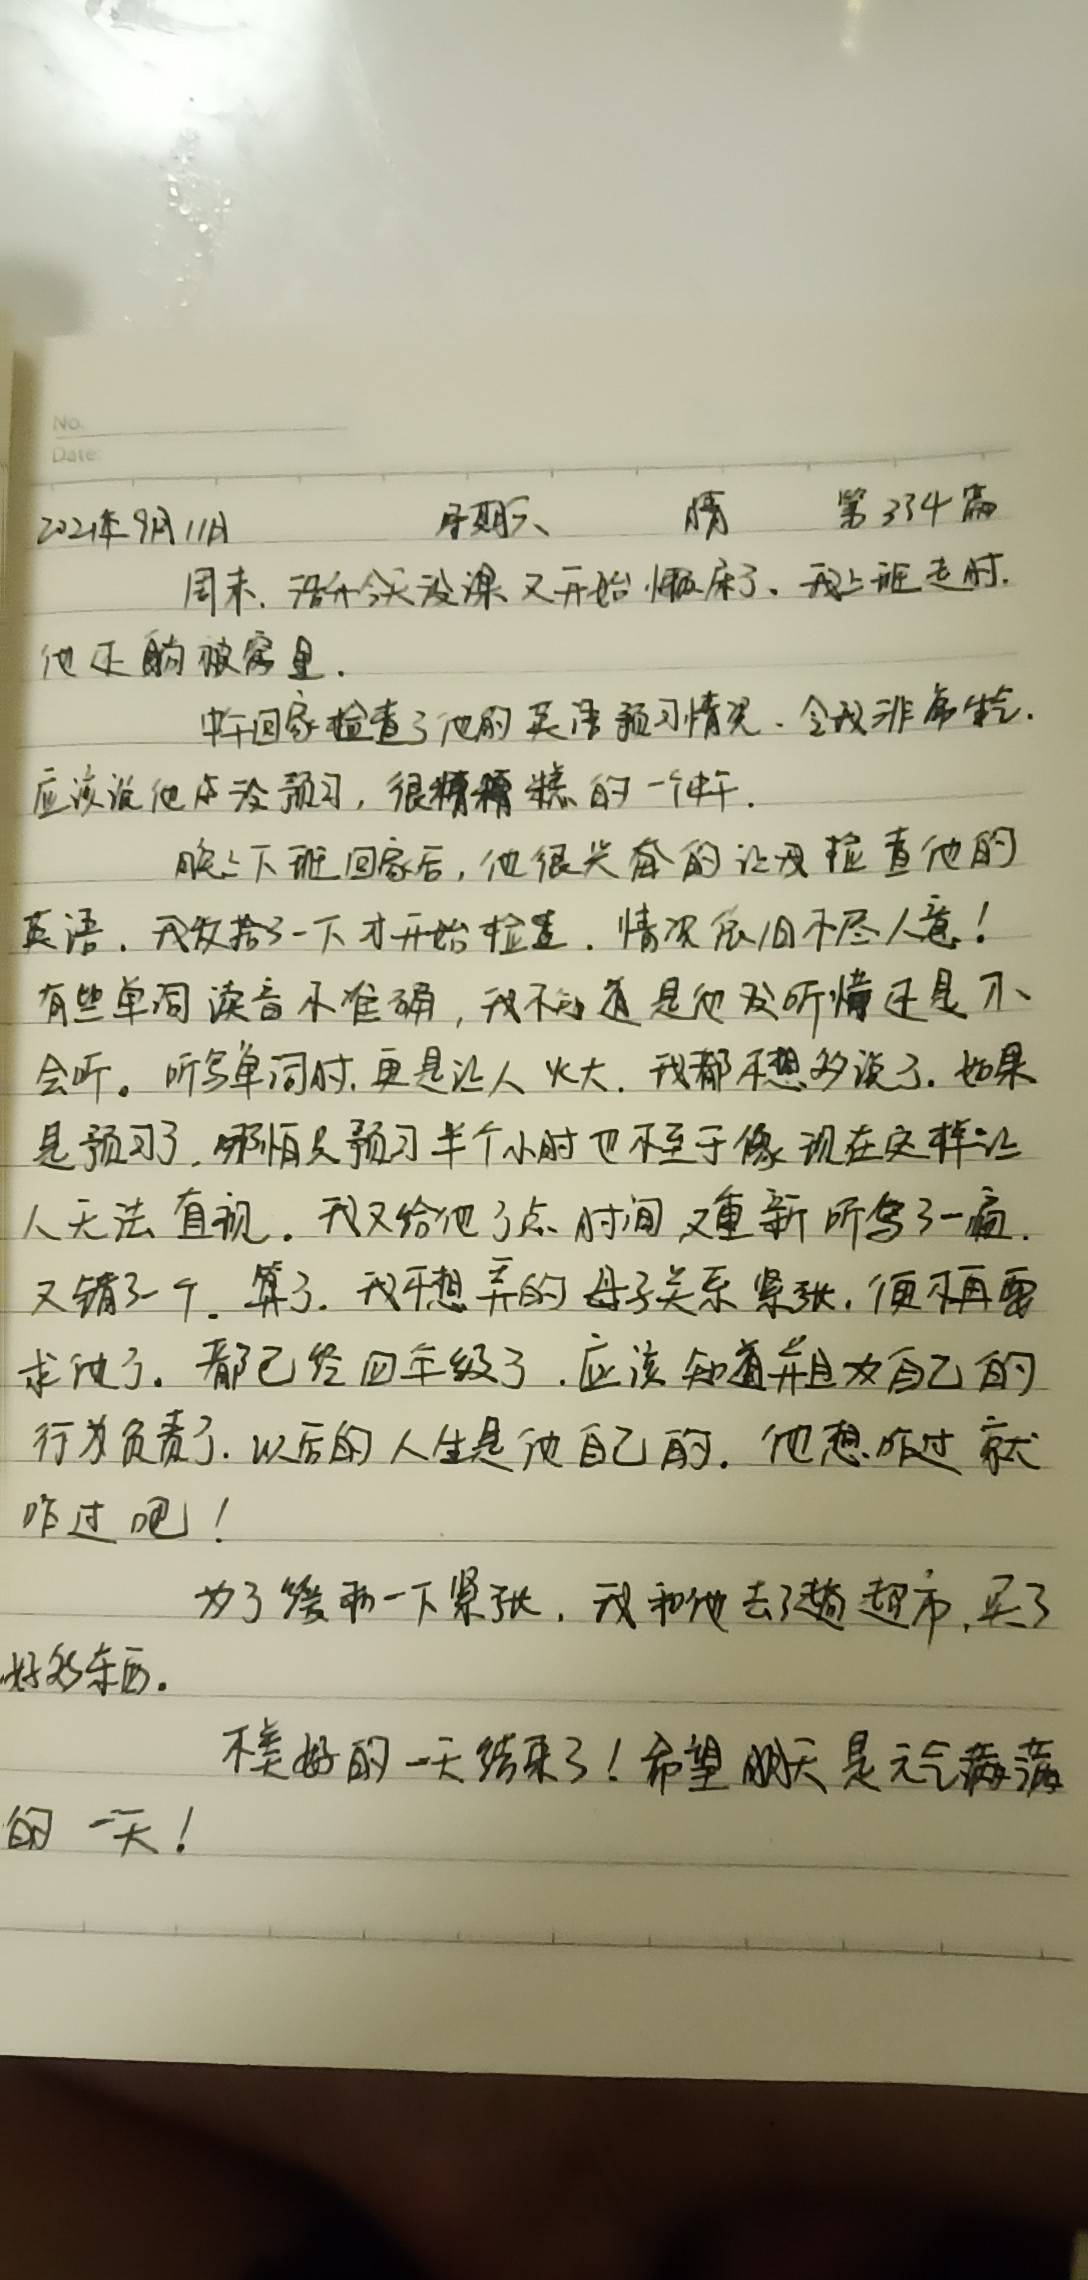 No.
Date:
2021年9月11日 星期天 晴 第334篇
周末，浩升今天没课又开始懒床了。我上班走时，
他还躺被窝里。
中午回家检查了他的英语预习情况，令我非常生气。
应该说他压没预习，很糟糟糕的一个中午。
晚上下班回家后，他很兴奋的让我检查他的
英语，我收拾了一下才开始检查，情况依旧不尽人意！
有些单词读音不准确，我不知道是他没听懂还是不
会听。听写单词时，更是让人火大，我都不想多说了。如果
是预习了，哪怕只预习半个小时也不至于像现在这样让
人无法直视。我又给他了点时间又重新听写了一遍，
又错了一个。算了，我不想弄的母子关系紧张，便不再要
求他了。都已经四年级了，应该知道并且为自己的
行为负责了。以后的人生是他自己的。他想咋过就
咋过吧！
为了缓和一下紧张，我和他去了趟超市，买了
好多东西。
不美好的一天结束了！希望明天是元气满满
的一天！